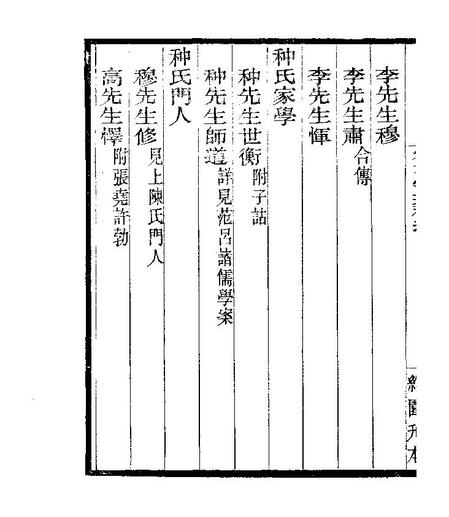 李先生穆
李先生肅合傳
李先生惲
种氏家學
种先生世衡附子詁
种先生師道詳見范呂諸儒學案
种氏門人
穆先生修見上陳氏門人
高先生懌附張蕘許勃